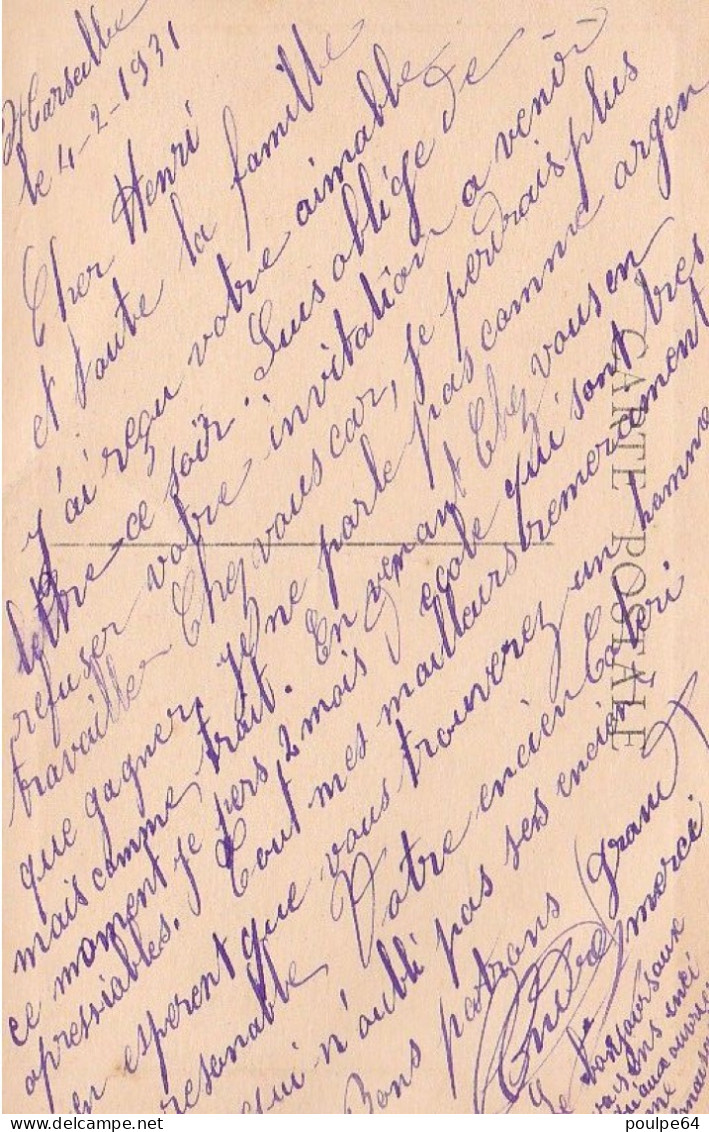 Marseille
le 4-2-1931
Cher Henri
et toute la famille
J'ai reçu votre aimable
lettre ce soir. Suis obligé de
refuser votre invitation a venir
travailler Chez vous car, je perdrais plus
que gagner, je ne parle pas comme argen
mais comme trait. En venant Chez vous en
ce moment je pers 2 mois d'école qui sont tres
apressiables. Tout mes mailleurs remerciment
en esperent que vous trouverez un homme
resonable, Votre encien
qui n'oubli pas ses encien
Bons patrons Gran
merci
André
CARTE POSTALE
https://www.delcampe.net
poulpe64